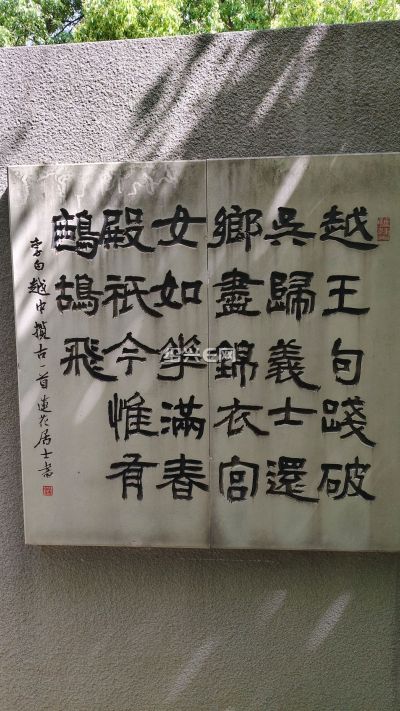 越王句踐破
吳歸義士還
鄉盡錦衣宮
女如華滿春
殿祇今惟有
鷓鴣飛
李白越中攬古一首 連花居士書
绍兴E网